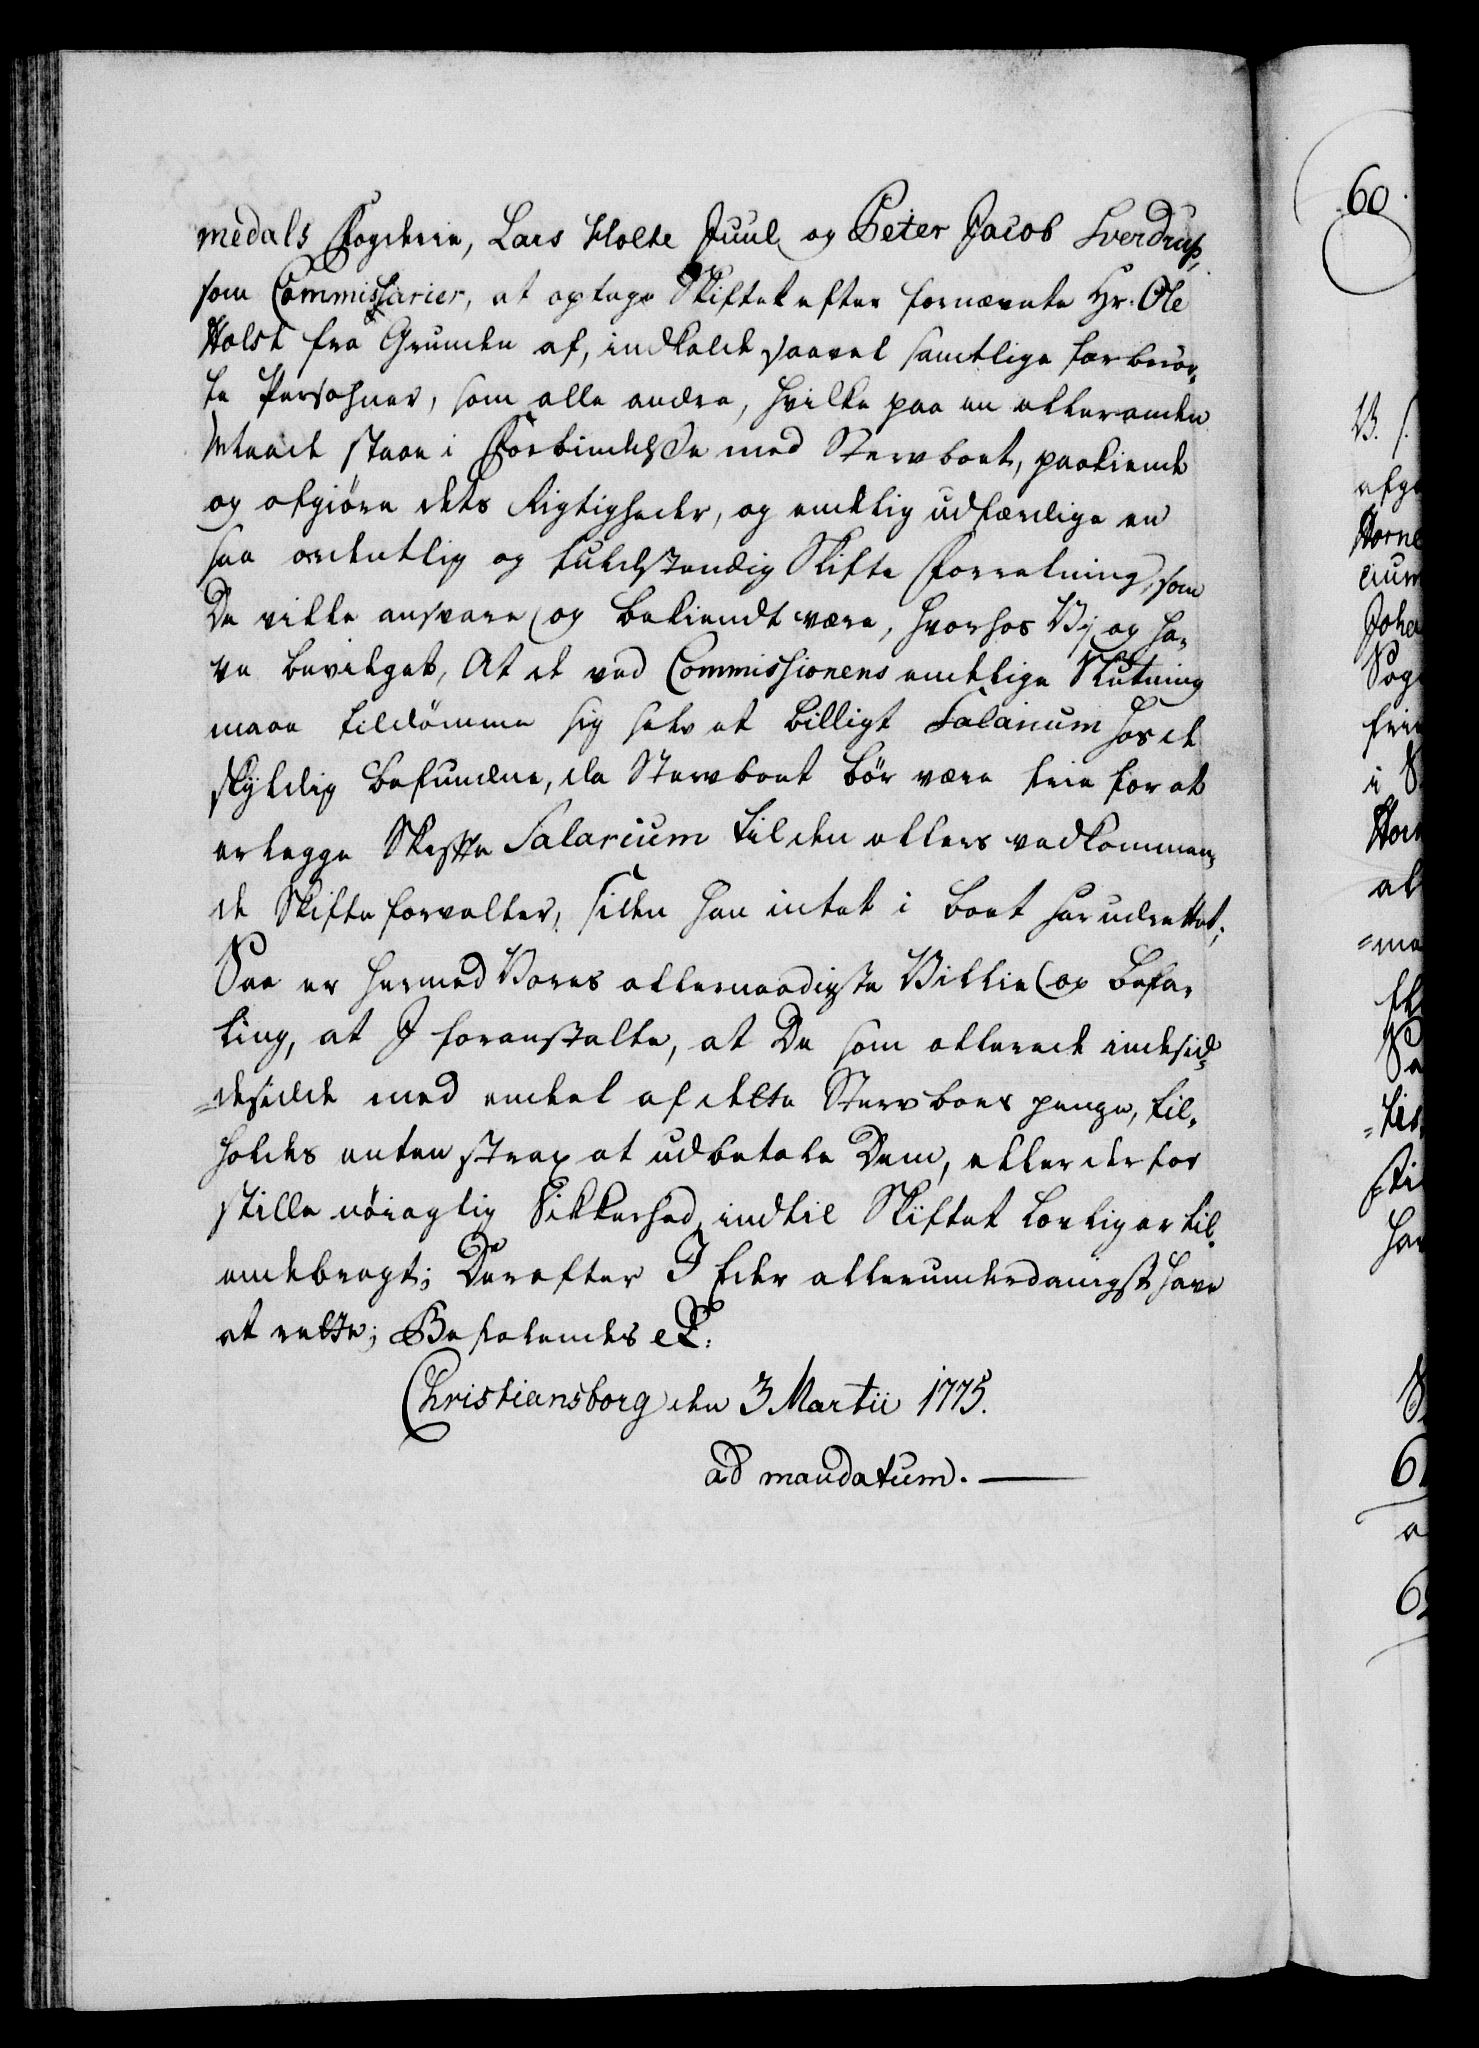 medals Fogderie, Lars Holte Juul og Peter Jacob Sverdrup,
som Commissarier, at optage Skiftet efter fornævnte Hr. Ole
Holst fra Grunden af, indkalde saavel samtlige forberør-
te Persohner, som alle andre, hvilke paa en eller anden
Maade staae i Forbindelse med Stervboet, paakiende
og afgiøre dets Rigtigheder, og endelig udfærdige en
saa ordentlig og fuldstændig Skifte Forretning, som
De ville ansvare og bekiendt være, hvorhos Vi og ha-
ve bevilget, At de ved Commissionens endelige Slutning
maae tildømme sig selv et billigt Salarium hos de
skyldig befundne, da Stervboet bør være frie for at
erlegge Skifte Salarium til den ellers vedkommen-
de Skifteforvalter, siden han intet i boet har udrettet;
Saa er hermed Vores allernaadigste Villie og befa-
ling, at I foranstalte, at De som allerede indesid-
desidde med endeel af dette Stervboes penge, til-
holdes enten strax at udbetale Dem, eller derfor
stille nøiagtig Sikkerhed, indtil Skiftet lovlig er til-
endebragt; Derefter I Eder allerunderdanigst have
at rette; Befalendes etc:
Christiansborg den 3 Martii 1775.
ad mandatum.
60.